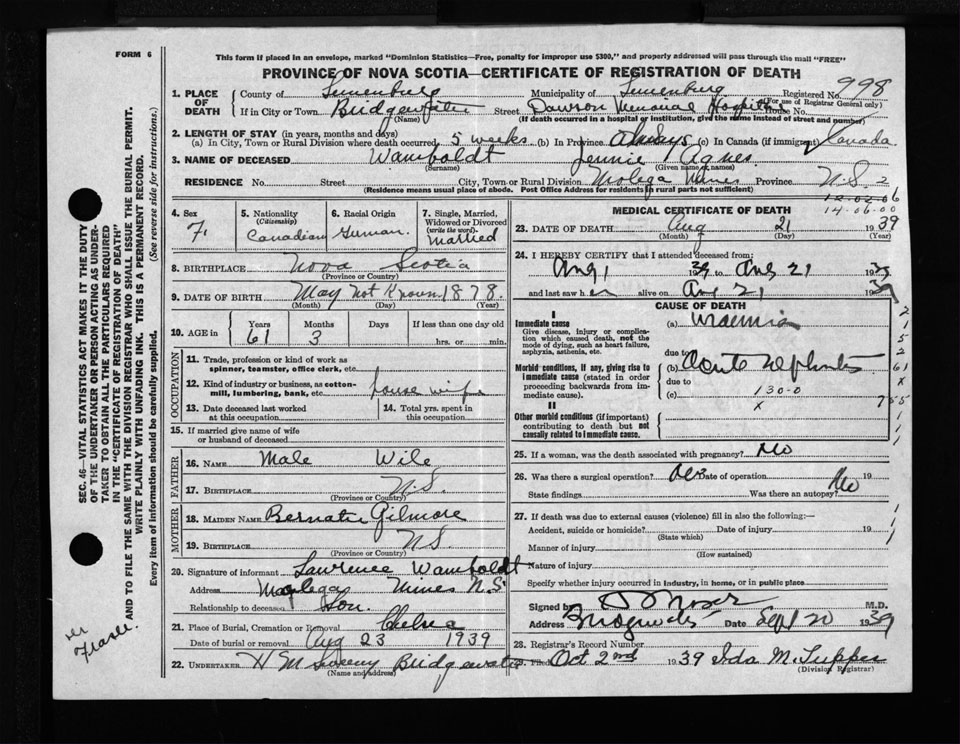 FORM 6
This form if placed in an envelope, marked "Dominion Statistics—Free, penalty for improper use $300," and properly addressed will pass through the mail "FREE"
PROVINCE OF NOVA SCOTIA—CERTIFICATE OF REGISTRATION OF DEATH
998
1. PLACE OF DEATH
County of Lunenburg Municipality of Lunenburg Registered No.
(For use of Registrar General only)
If in City or Town Bridgewater Street Dawson Memorial Hospital House No.
(Name) (If death occurred in a hospital or institution, give the name instead of street and number)
2. LENGTH OF STAY (in years, months and days)
(a) In City, Town or Rural Division where death occurred 5 weeks (b) In Province Always (c) In Canada (if immigrant) Canada
3. NAME OF DECEASED Wamboldt Jennie Agnes
(Surname) (Given names)
RESIDENCE No. Street City, Town or Rural Division Molega Mines Province N.S. 2
(Residence means usual place of abode. Post Office Address for residents in rural parts not sufficient)
12-02-06
14-06-00
4. Sex F.
5. Nationality (Citizenship) Canadian
6. Racial Origin German.
7. Single, Married, Widowed or Divorced (write the word) Married
8. BIRTHPLACE Nova Scotia
(Province or Country)
9. DATE OF BIRTH May Not Known 1878
(Month) (Day) (Year)
10. AGE in Years Months Days If less than one day old
61 3 hrs. or min.
OCCUPATION
11. Trade, profession or kind of work as spinner, teamster, office clerk, etc.
12. Kind of industry or business, as cotton-mill, lumbering, bank, etc. house wife
13. Date deceased last worked at this occupation
14. Total yrs. spent in this occupation
15. If married give name of wife or husband of deceased
FATHER
16. NAME Male Wile
17. BIRTHPLACE N.S.
(Province or Country)
MOTHER
18. MAIDEN NAME Gilmore
19. BIRTHPLACE N.S.
(Province or Country)
20. Signature of informant Lawrence Wamboldt
Address Mines N.S.
Relationship to deceased Son.
21. Place of Burial, Cremation or Removal Chelsea
Date of burial or removal Aug 23 1939
22. UNDERTAKER H M Sweeny Bridgewater
(Name and address)
MEDICAL CERTIFICATE OF DEATH
23. DATE OF DEATH Aug 21 1939
(Month) (Day) (Year)
24. I HEREBY CERTIFY that I attended deceased from:
Aug 1 1939 to Aug 21 1939
and last saw her alive on Aug 21 1939
CAUSE OF DEATH
I
Immediate cause
Give disease, injury or complication which caused death, not the mode of dying, such as heart failure, asphyxia, asthenia, etc.
(a) Uraemia
due to
Morbid conditions, if any, giving rise to immediate cause (stated in order proceeding backwards from immediate cause).
(b) Acute Nephritis
due to
(c) 130-0
x 7 55
II
Other morbid conditions (important) contributing to death but not causally related to immediate cause.
2
1
5
2
61
x
25. If a woman, was the death associated with pregnancy? No
26. Was there a surgical operation? Date of operation 19
State findings Was there an autopsy? No
27. If death was due to external causes (violence) fill in also the following:—
Accident, suicide or homicide? Date of injury 19
(State which)
Manner of injury
(How sustained)
Nature of injury
Specify whether injury occurred in industry, in home, or in public place
Signed by Moser M.D.
Address Bridgewater Date Sept 20 1939
28. Registrar's Record Number
29. Filed Oct 2nd 1939 Ida M. Tupper
(Division Registrar)
SEC. 46—VITAL STATISTICS ACT MAKES IT THE DUTY
OF THE UNDERTAKER OR PERSON ACTING AS UNDER-
TAKER TO OBTAIN ALL THE PARTICULARS REQUIRED
IN THE "CERTIFICATE OF REGISTRATION OF DEATH"
AND TO FILE THE SAME WITH THE DIVISION REGISTRAR WHO SHALL ISSUE THE BURIAL PERMIT.
WRITE PLAINLY WITH UNFADING INK. THIS IS A PERMANENT RECORD.
Every item of information should be carefully supplied. (See reverse side for instructions.)